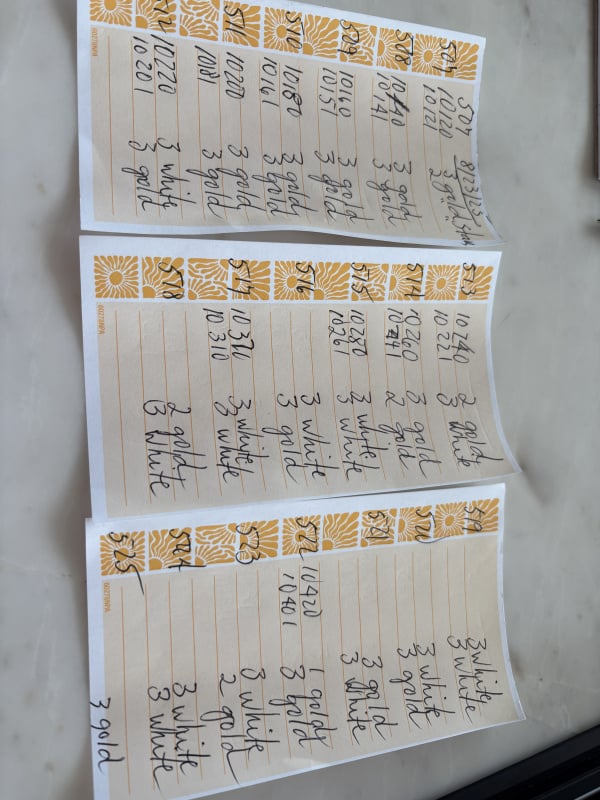 507 507 8/23/25
10120 3 gold
10121 2 gold
508 10140 3 gold
10141 3 gold
509 10160 3 gold
10151 3 gold
510 10180 3 gold
10161 3 gold
511 10200 3 gold
10181 3 gold
512 10220 3 white
10201 3 gold
60278NPA
513 10240 2 gold
10221 3 white
514 10260 3 gold
2 gold
515 10280 3 white
10261 3 white
516 3 white
3 gold
517 3 white
10310 3 white
518 2 gold
3 white
60278NPA
519 3 white
3 white
520 3 white
3 gold
521 3 gold
3 white
522 10420 1 gold
10401 3 gold
523 3 white
2 gold
524 3 white
3 white
525 3 gold
60278NPA